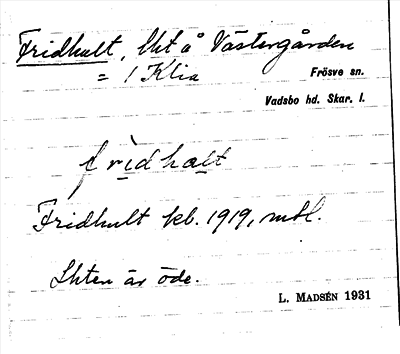 Fridhult, lht å Västergården
= 1 Klia
Frösve sn.
Vadsbo hd. Skar. l.
fridhalt
Fridhult kb. 1919, mtl.
Lhten är öde.
L. MADSÉN 1931